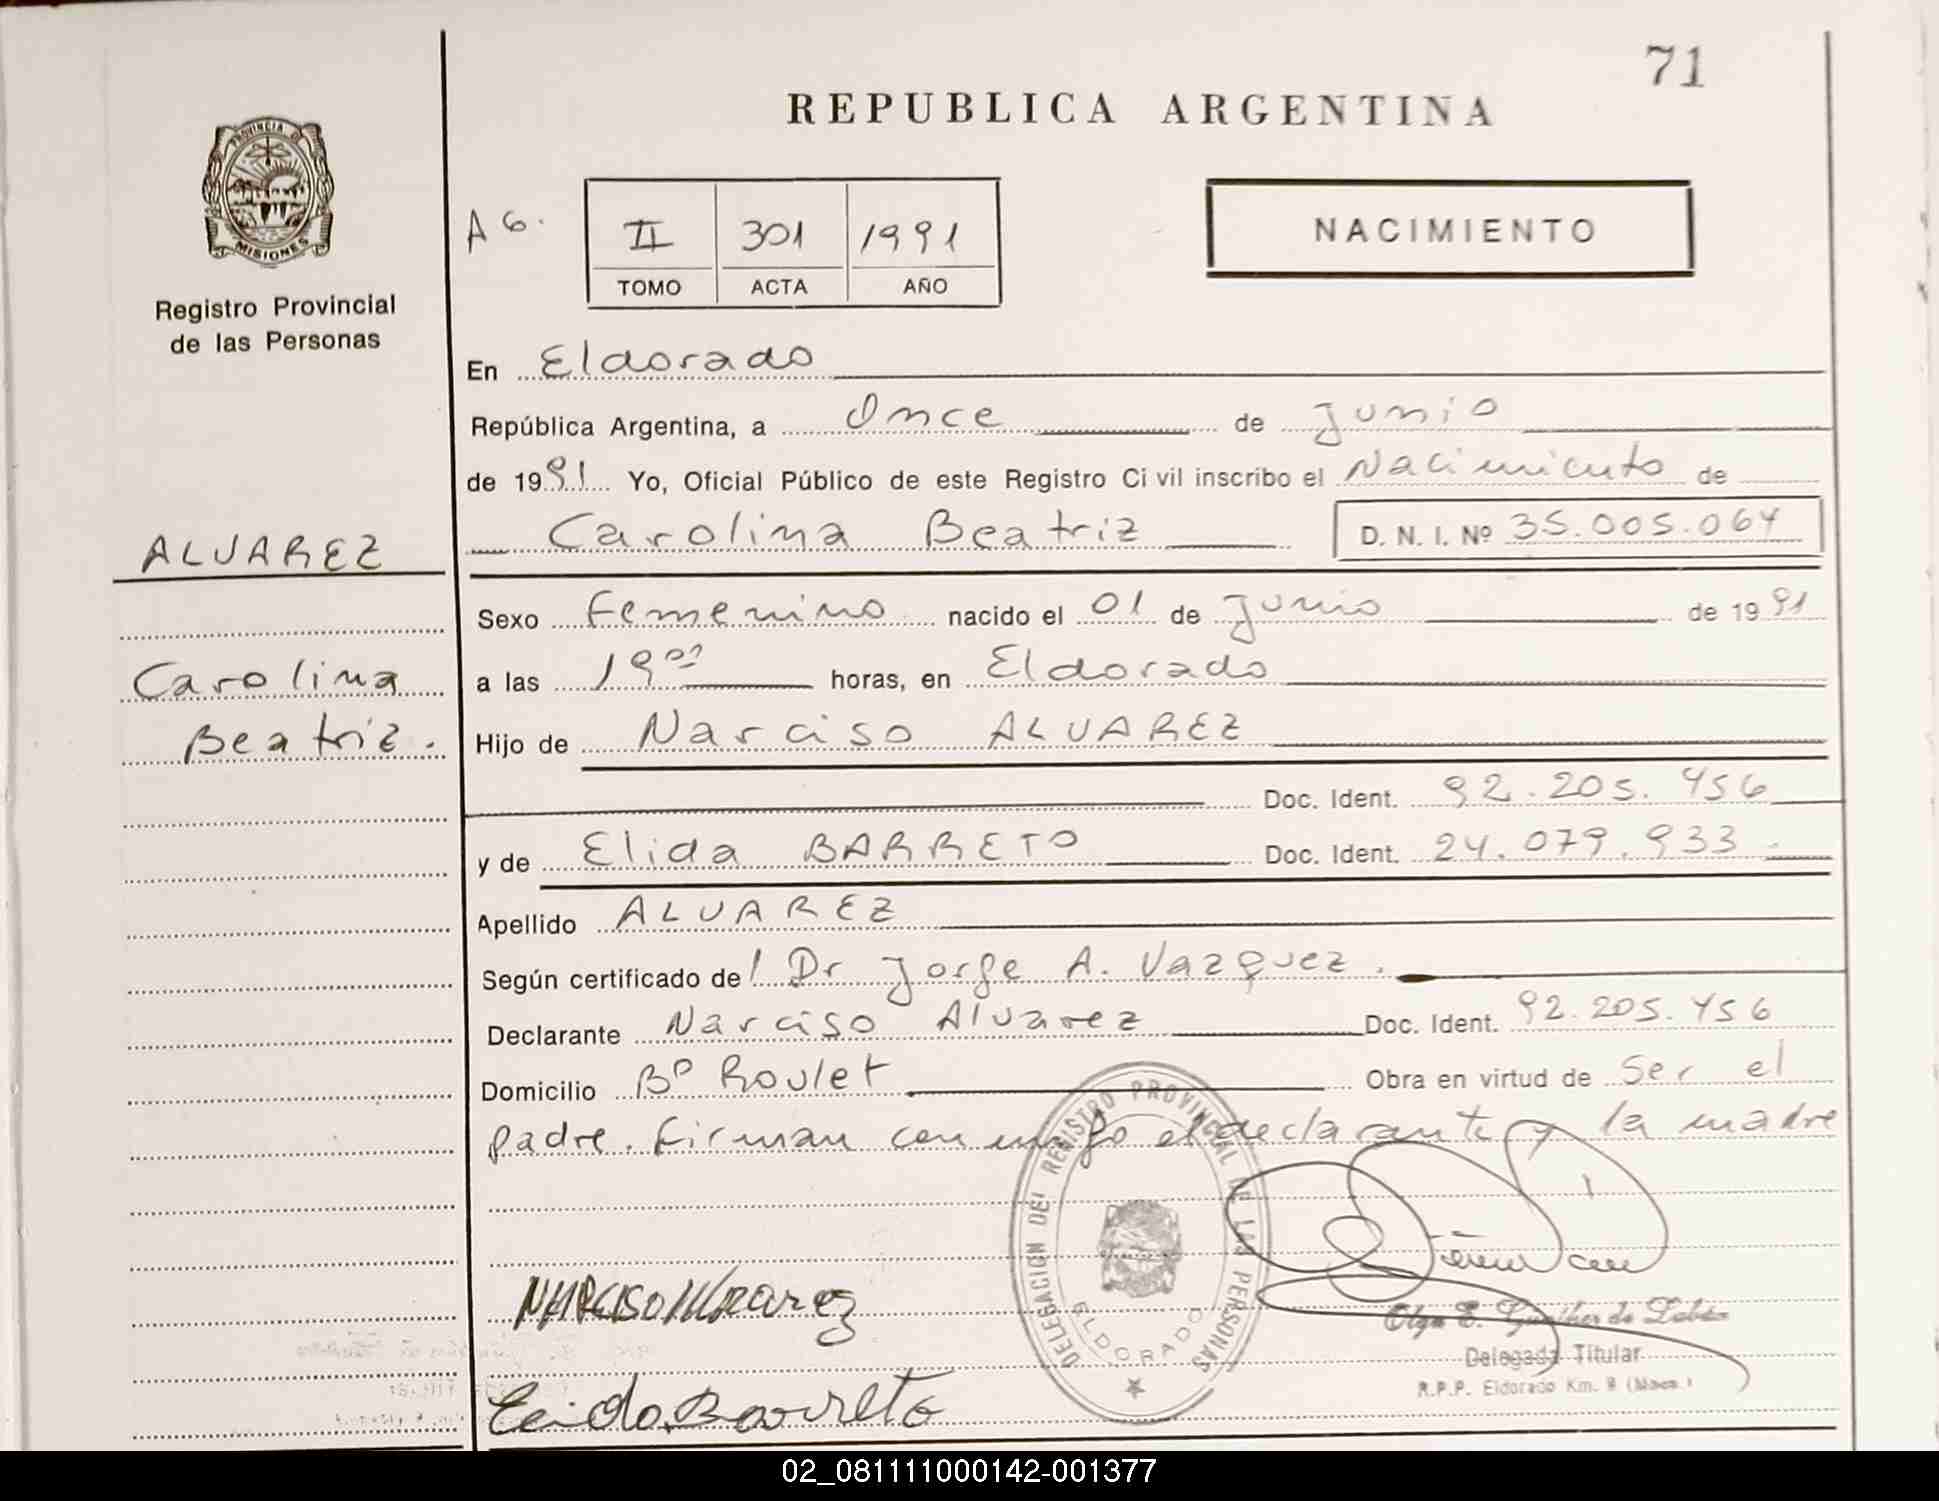 71
REPUBLICA ARGENTINA
PROVINCIA DE
MISIONES
Registro Provincial
de las Personas
A 6.
II 301 1991
TOMO ACTA AÑO
NACIMIENTO
En Eldorado
República Argentina, a Once de Junio
de 1991 Yo, Oficial Público de este Registro Civil inscribo el Nacimiento de
Carolina Beatriz D. N. I. Nº 35.005.064
ALVAREZ
Carolina
Beatriz.
Sexo Femenino nacido el 01 de Junio de 1991
a las 19 00 horas, en Eldorado
Hijo de Narciso ALVAREZ
Doc. Ident. 92.205.456
y de Elida BARRETO Doc. Ident. 24.079.933
Apellido ALVAREZ
Según certificado del Dr Jorge A. Vazquez.
Declarante Narciso Alvarez Doc. Ident. 92.205.456
Domicilio Bº Roulet Obra en virtud de ser el
padre. Firman conmigo el declarante y la madre
DELEGACION DEL REGISTRO PROVINCIAL DE LAS PERSONAS
ELDORADO
Narciso Alvarez
Elida Barreto
Olga E. Gunther de
Delegada Titular
R.P.P. Eldorado Km. 9 (Mnes.)
02_081111000142-001377